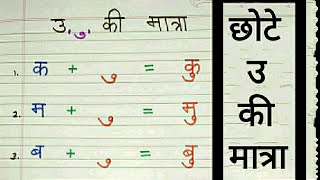 उ, ु, की मात्रा
1. क + ु = कु
2. म + ु = मु
3. ब + ु = बु
छोटे
उ
की
मात्रा